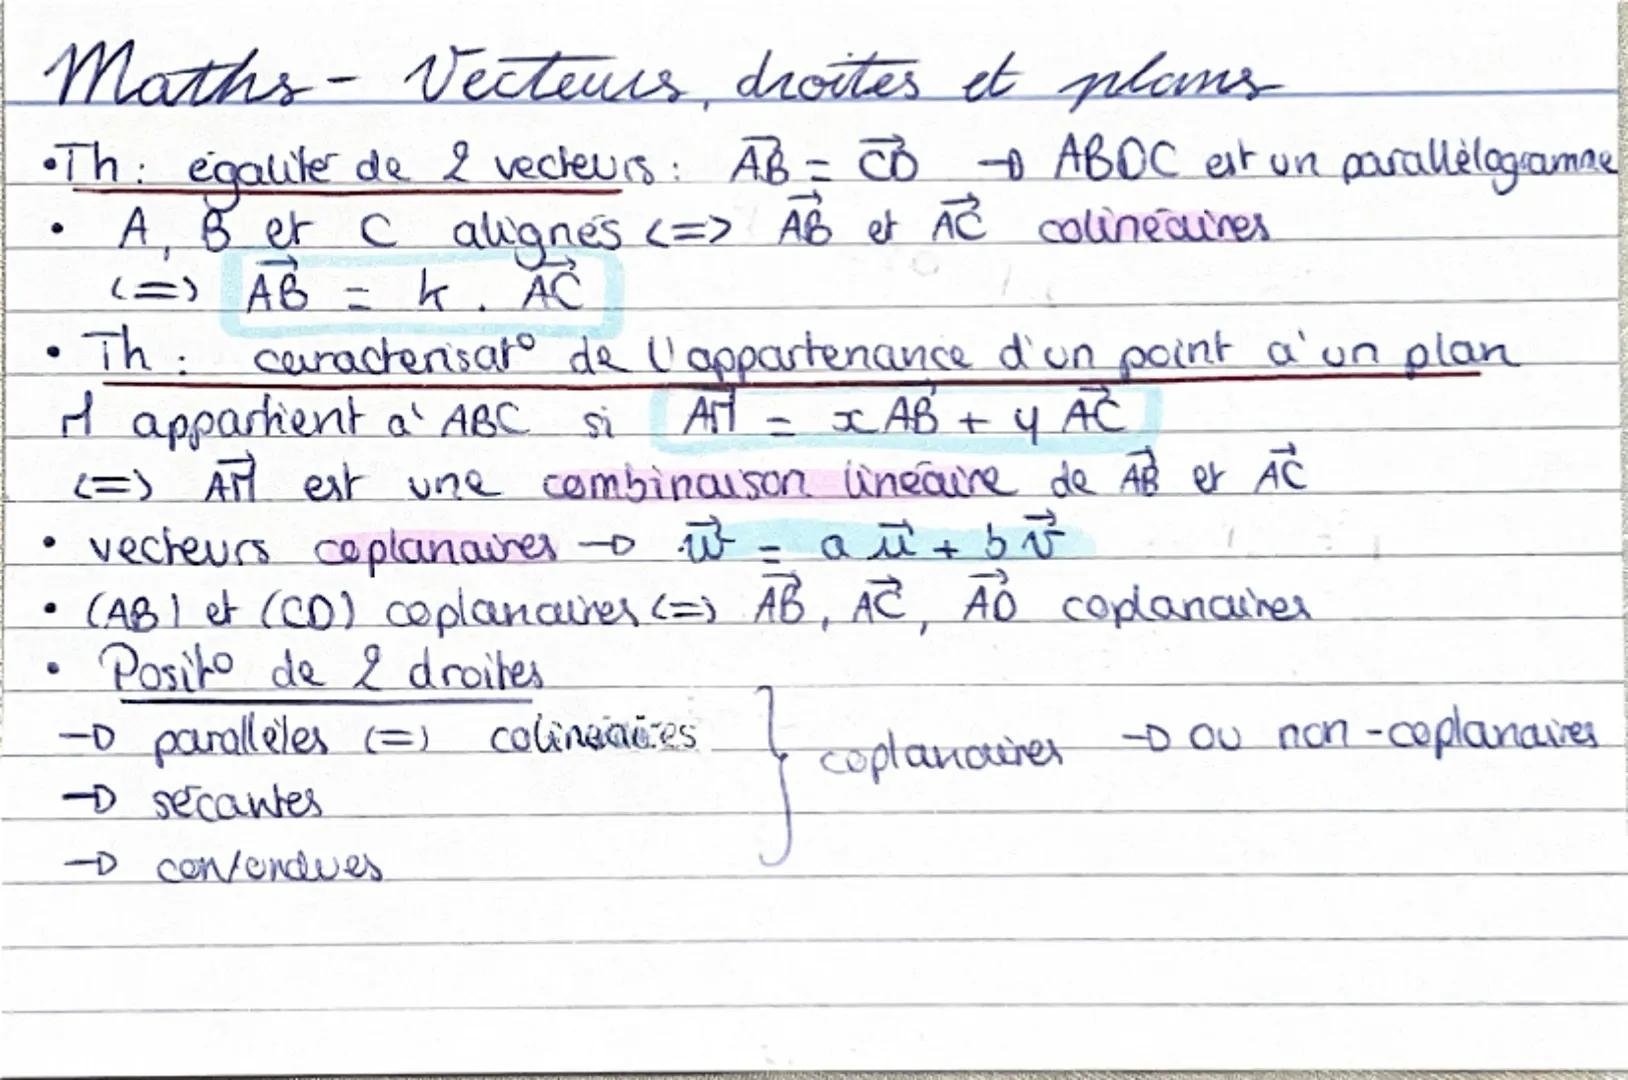 Maths - Vecteurs, droites et plans
•Th : égaliter de 2 vecteurs : AB⃗ = CD⃗ → ABDC est un parallèlogramme
• A, B et C alignés <=> AB⃗ et AC⃗ colinéaires
<=> AB⃗ = k . AC⃗
• Th : caracterisat° de l'appartenance d'un point à un plan
M appartient à ABC si AM⃗ = x AB⃗ + y AC⃗
<=> AM⃗ est une combinaison linéaire de AB⃗ et AC⃗
• vecteurs coplanaires → w⃗ = a u⃗ + b v⃗
• (AB) et (CD) coplanaires <=> AB⃗, AC⃗, AD⃗ coplanaires
• Posit° de 2 droites
→ parallèles <=> colinéaires } coplanaires → ou non-coplanaires
→ sécantes
→ confondues